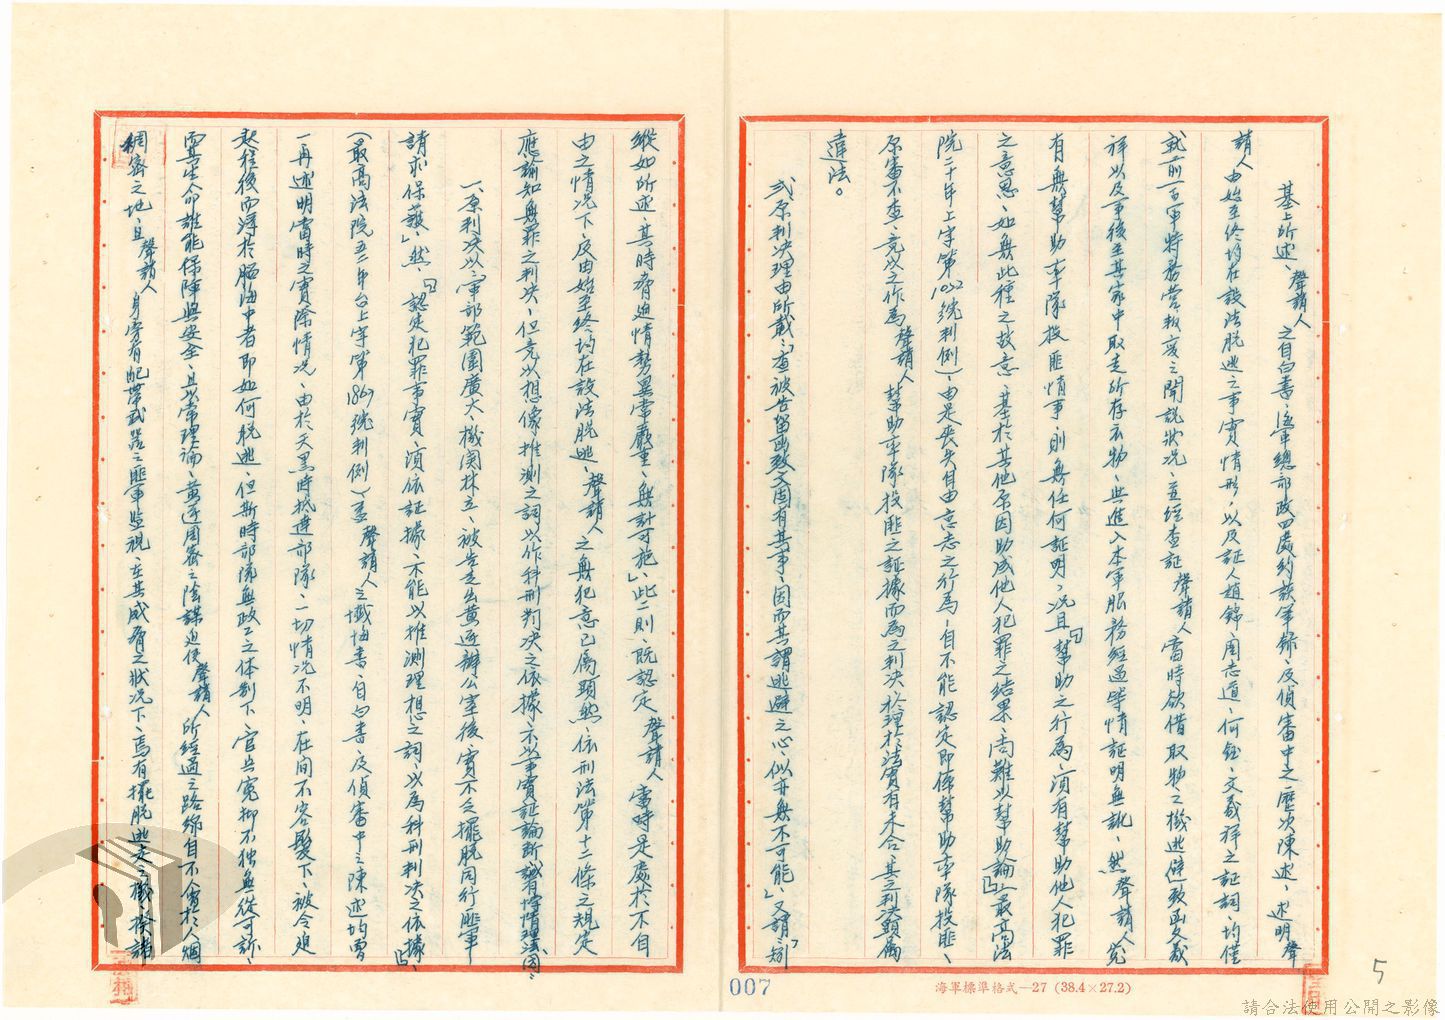 基上所述、聲請人之自白書、海軍總部政四處約談筆錄、及偵審中之歷次陳述、述明聲
請人由始至終均在設法脫逃之事實情形、以及証人趙錦、周志道、何鈺、文義祥之証詞、均僅
就前一百軍特務營叛變之聞說狀況、並經查証聲請人當時欲借取物之機逃避致函文義
祥以及事後至其家中取走所存衣物、與進入本軍服務經過等情証明無訛、然聲請人究
有無幫助率隊投匪情事、則無任何証明、況且「幫助之行為、須有幫助他人犯罪
之意思、如無此種之故意、基於其他原因助成他人犯罪之結果、尚難以幫助論」(最高法
院二十年上字第1022號判例)、由是喪失自由意志之行為、自不能認定即係幫助率隊投匪、
原審不查、竟以之作為聲請人幫助率隊投匪之証據而為之判決、於理於法實有未合、其之判決顯屬
違法。
貳原判決理由所載:「查被告留函致文固有其事、因而其謂逃避之心似亦無不可能」又謂:「矧
縱如所述、其時脅迫情勢異常嚴重、無計可施」、此二則、既認定聲請人當時是處於不自
由之情況下、及由始至終均在設法脫逃、聲請人之無犯意已屬顯然、依刑法第十二條之規定
應諭知無罪之判決、但竟以想像推測之詞以作科刑判決之依據、不以事實証論斷、誠有悖情理法、因:
一、原判決以:「軍部範圍廣大、機関林立、被告走出黃逐辦公室後、實不乏擺脫同行匪軍
請求保護」、然、「認定犯罪事實、須依証據、不能以推測理想之詞、以為科刑判決之依據」
(最高法院五三年台上字第1867號判例)、蓋聲請人之懺悔書、自白書、及偵審中之陳述均曾
一再述明當時之實際情況、由於天黑時抵達部隊、一切情況不明、在間不容髮下、被令追
趕往後而淳於腦海中者即如何脫逃、但斯時部隊無政工之体制下、官兵冤抑不独無從可訴、
而其生命誰能保障與安全、且以常理論、黃逐周密之陰謀迫使聲請人所經過之路線自不會於人烟
稠密之地、且聲請人身旁有配帶武器之匪軍監視、在其威脅之狀況下、焉有擺脫逃走之機、揆諸
007
海軍標準格式—27 (38.4×27.2)
5
請合法使用公開之影像